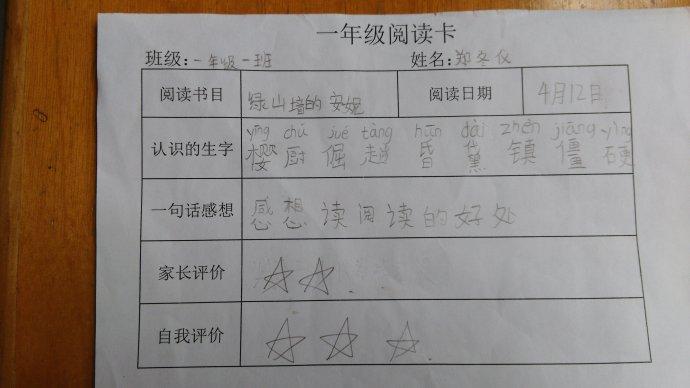 一年级阅读卡
班级：一年级一班 姓名：郑冬仪
阅读书目 绿山墙的安妮 阅读日期 4月12日
yīng chú jué tàng hūn dài zhèn jiāng yìng
认识的生字 樱 厨 倔 趟 昏 黛 镇 僵 硬
一句话感想 感想读阅读的好处
家长评价 ☆☆.
自我评价 ☆☆☆.